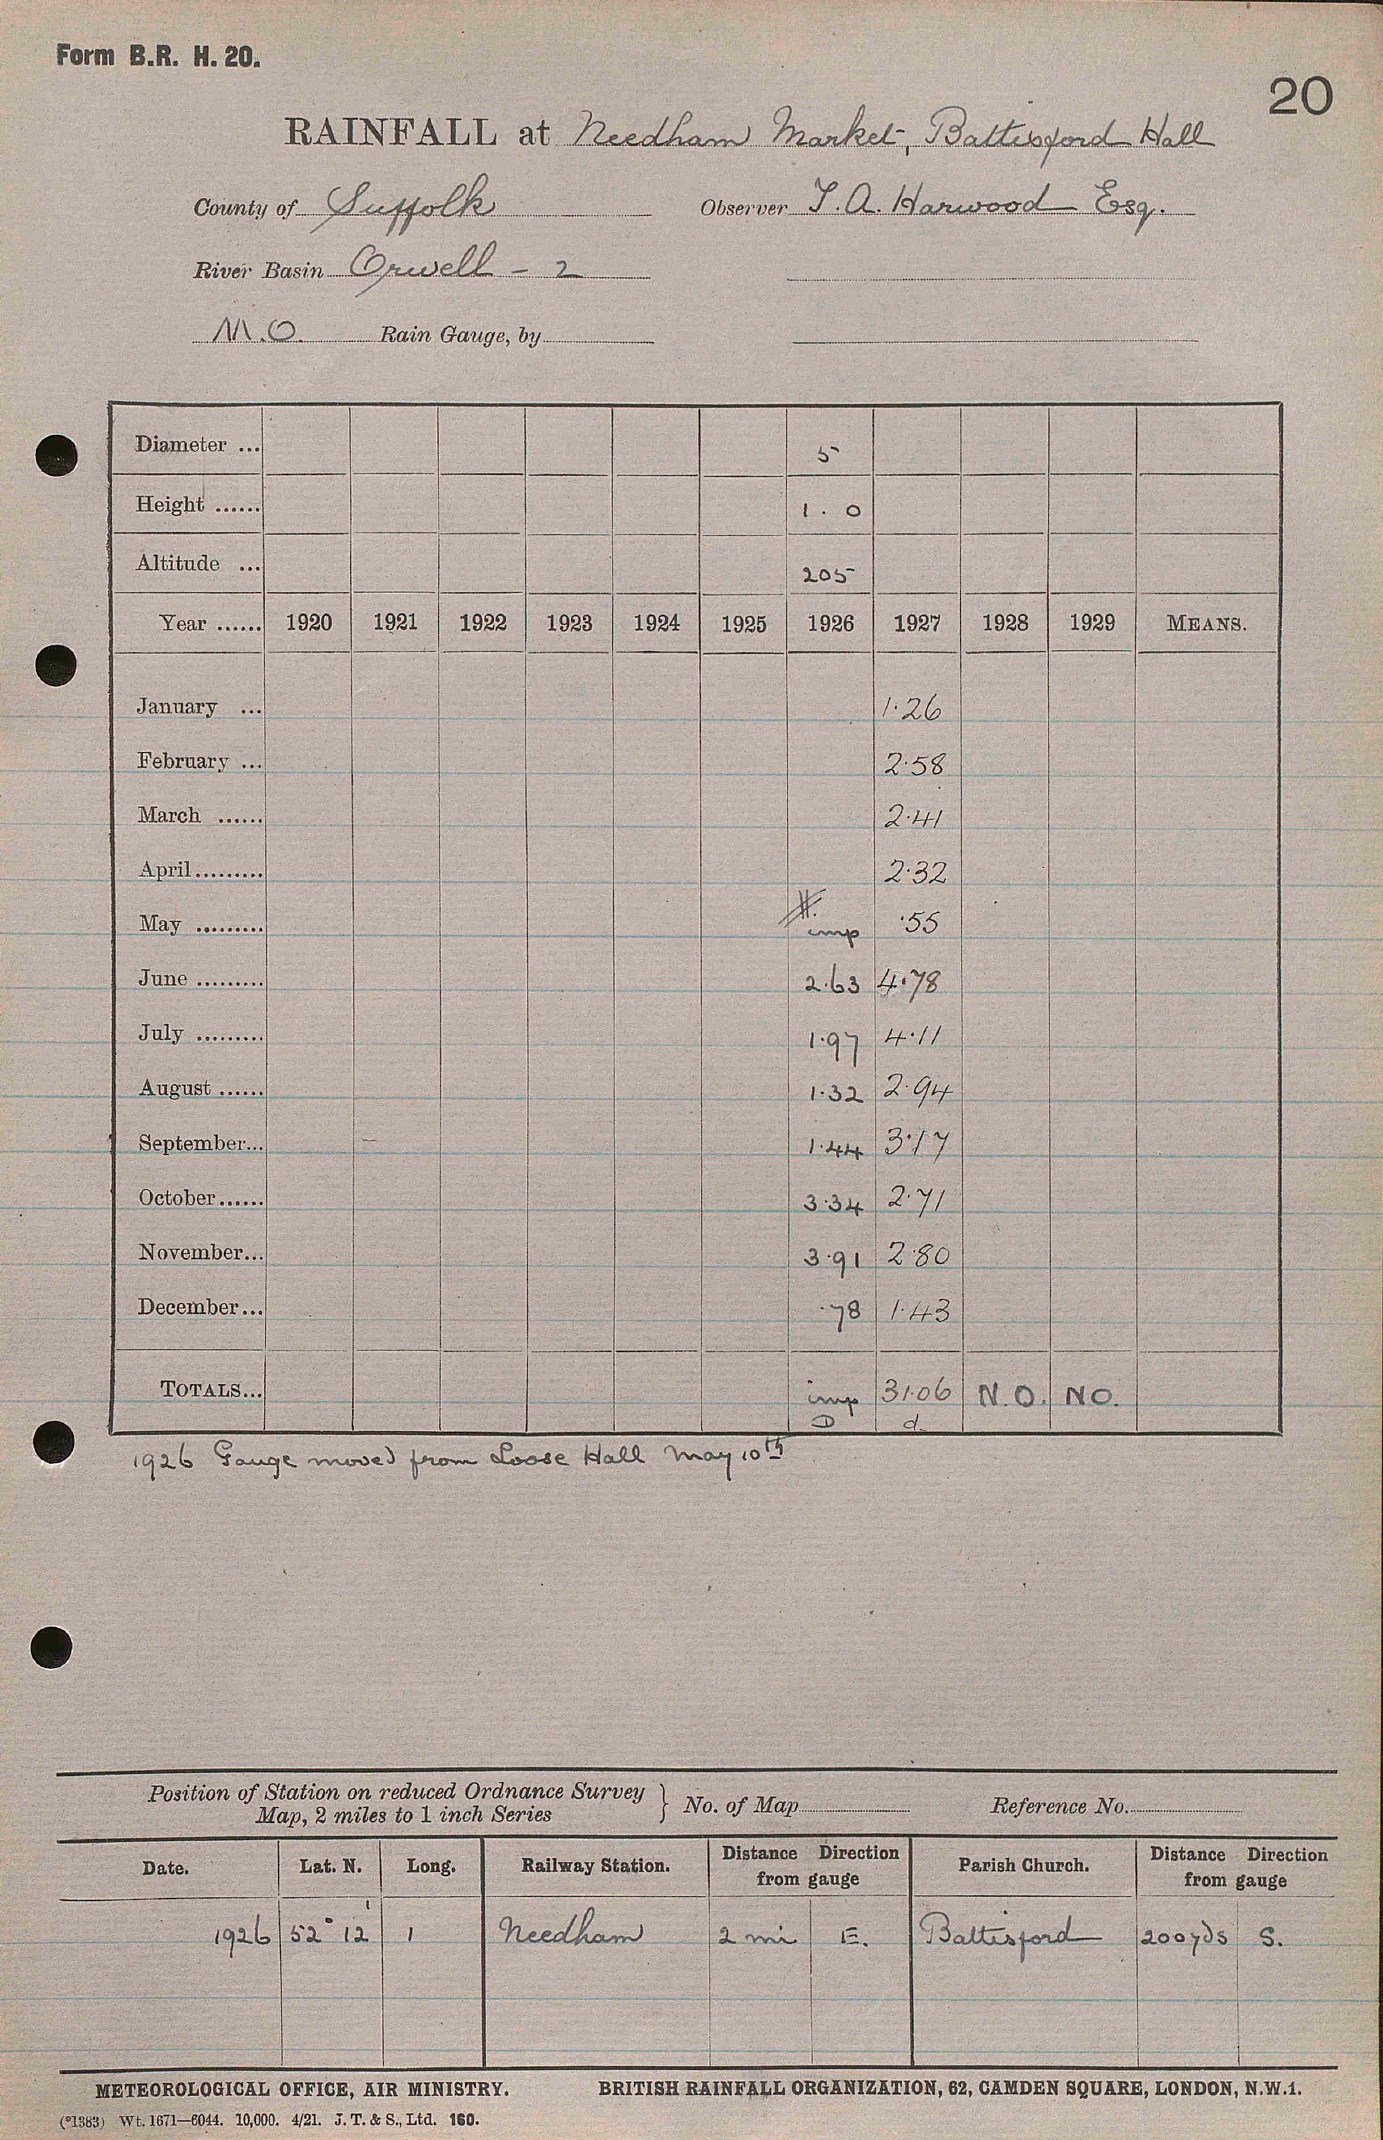 Form B.R. H. 20.
20
RAINFALL at Needham Market, Battisford Hall
County of Suffolk Observer T. A. Harwood Esq.
River Basin Orwell - 2
M.O. Rain Gauge, by
Diameter ... 5
Height ...... 1.0
Altitude ... 205
Year ...... 1920 1921 1922 1923 1924 1925 1926 1927 1928 1929 MEANS.
January ... 1.26
February ... 2.58
March ...... 2.41
April ......... 2.32
May ......... imp .55
June ......... 2.63 4.78
July ......... 1.97 4.11
August ...... 1.32 2.94
September... 1.44 3.17
October ...... 3.34 2.71
November... 3.91 2.80
December... .78 1.43
TOTALS... imp 31.06 N.O. NO.
D d
1926 Gauge moved from Loose Hall May 10th
Position of Station on reduced Ordnance Survey
Map, 2 miles to 1 inch Series } No. of Map Reference No.
Date. Lat. N. Long. Railway Station. Distance Direction from gauge Parish Church. Distance Direction from gauge
1926 52° 12' 1 Needham 2 mi E. Battisford 200yds S.
METEOROLOGICAL OFFICE, AIR MINISTRY. BRITISH RAINFALL ORGANIZATION, 62, CAMDEN SQUARE, LONDON, N.W.1.
(*1383) Wt. 1671—6044. 10,000. 4/21. J. T. & S., Ltd. 160.